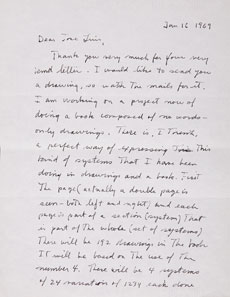 Jan 16 1969
Dear
Thank you very much for your very
kind letter. I would like to send you
a drawing, so watch the mails for it.
I am working on a project now of
doing a book composed of
only drawings. There is, I think,
a perfect way of expressing this
kind of systems that I have been
doing in drawings and a book. First
the page (actually a double page is
seen - both left and right) and each
page is part of a section (system) that
is part of the whole (set of systems)
There will be 192 drawings in the book
It will be based on the use of the
number 4. There will be 4 systems
of 24 variation of 1234 each done